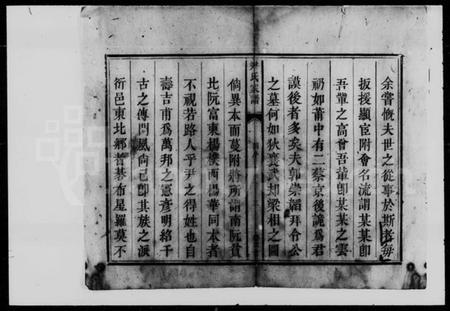 余嘗慨夫世之從事於斯者每
扳援顯宦附會名流謂某某卽
吾輩之高曾吾輩卽某某之雲
礽如莆中有二蔡京後詭為君
謨後者多矣夫郭崇韜拜令公
之墓何如狄襄武却梁相之圖
尹氏家譜
倘異本而蔓附將所謂南阮貴
北阮富東楊樓西楊華同本者
不視若路人乎尹之得姓也自
壽吉甫為萬邦之憲彥明紹千
古之傳門風尚已卽其族之派
衍邑東北鄉者碁布星羅莫不